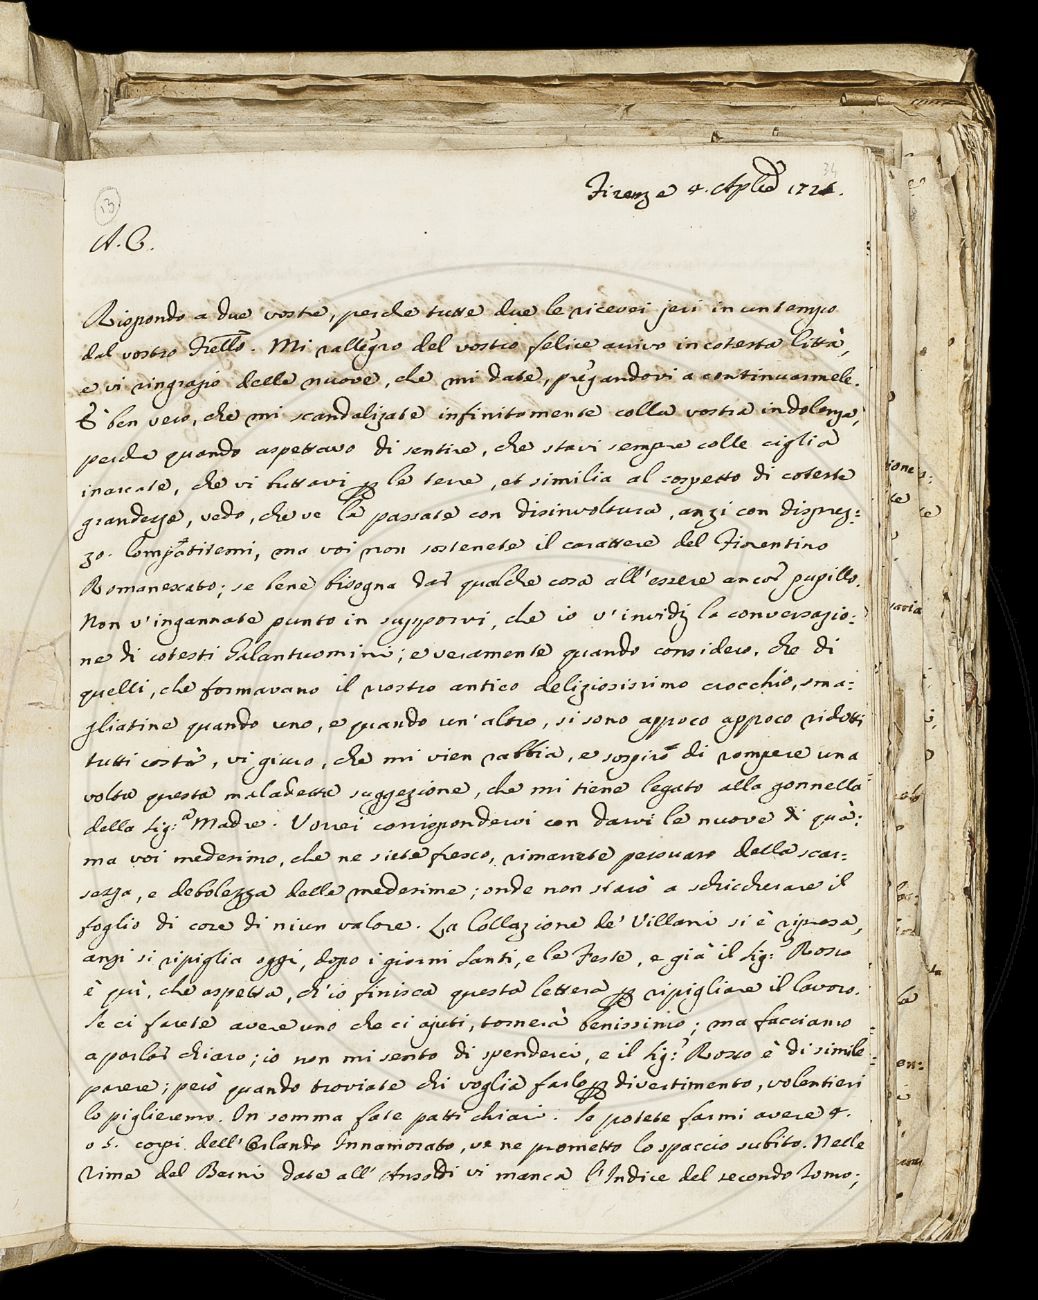 34
Firenze 4. Aple 172
13
A. C.
Rispondo a due vostre, perche tutte due le ricevei jeri in un tempo
dal vostro Frello. Mi rallegro del vostro felice arrivo in cotesta Città,
e vi ringrazio delle nuove, che mi date, pregandovi a continuarmele.
È ben vero, che mi scandalizate infinitamente colla vostra indolenza,
perche quando aspettavo di sentire, che stavi sempre colle ciglia
inarcate, che vi buttavi p le terre, et similia al cospetto di coteste
grandezze, vedo, che ve la passate con disinvoltura, anzi con disprez:
zo. Compatitemi, ma voi non sostenete il carattere del Fiorentino
Romanescato; se bene bisogna dar qualche cosa all'essere ancor pupillo.
Non v'ingannate punto in supporvi, che io v'invidj la conversazio:
ne di cotesti Galantuomini; e veramente quando considero, che di
quelli, che formavano il nostro antico deliziosissimo crocchio, sma:
gliatine quando uno, e quando un'altro, si sono appoco appoco ridotti
tutti costà, vi giuro, che mi vien rabbia, e sospiro di rompere una
volta questa maladetta suggezione, che mi tiene legato alla gonnella
della Sig:a Madre. Vorrei corrispondervi con darvi le nuove di quà:
ma voi medesimo, che ne siete fresco, rimarrete persuaso della scar:
sezza, e debolezza delle medesime; onde non starò a schiccherare il
foglio di cose di niun valore. La Collazione de' Villani si è ripresa,
anzi si ripiglia oggi, dopo i giorni Santi, e le Feste, e già il Sig:r Rosso
è quì, che aspetta, ch'io finisca questa lettera p ripigliare il lavoro.
Se ci farete avere uno che ci ajuti, tornerà benissimo; ma facciamo
a parlar chiaro; io non mi sento di spenderci, e il Sig:r Rosso è di simile
parere; però quando troviate chi voglia farlo p divertimento, volentieri
lo piglieremo. In somma fate patti chiari. Se potete farmi avere 4.
o 5. corpi dell'Orlando Innamorato, ve ne prometto lo spaccio subito. Nelle
rime del Berni date all'Ansaldi vi manca l'Indice del secondo Tomo;